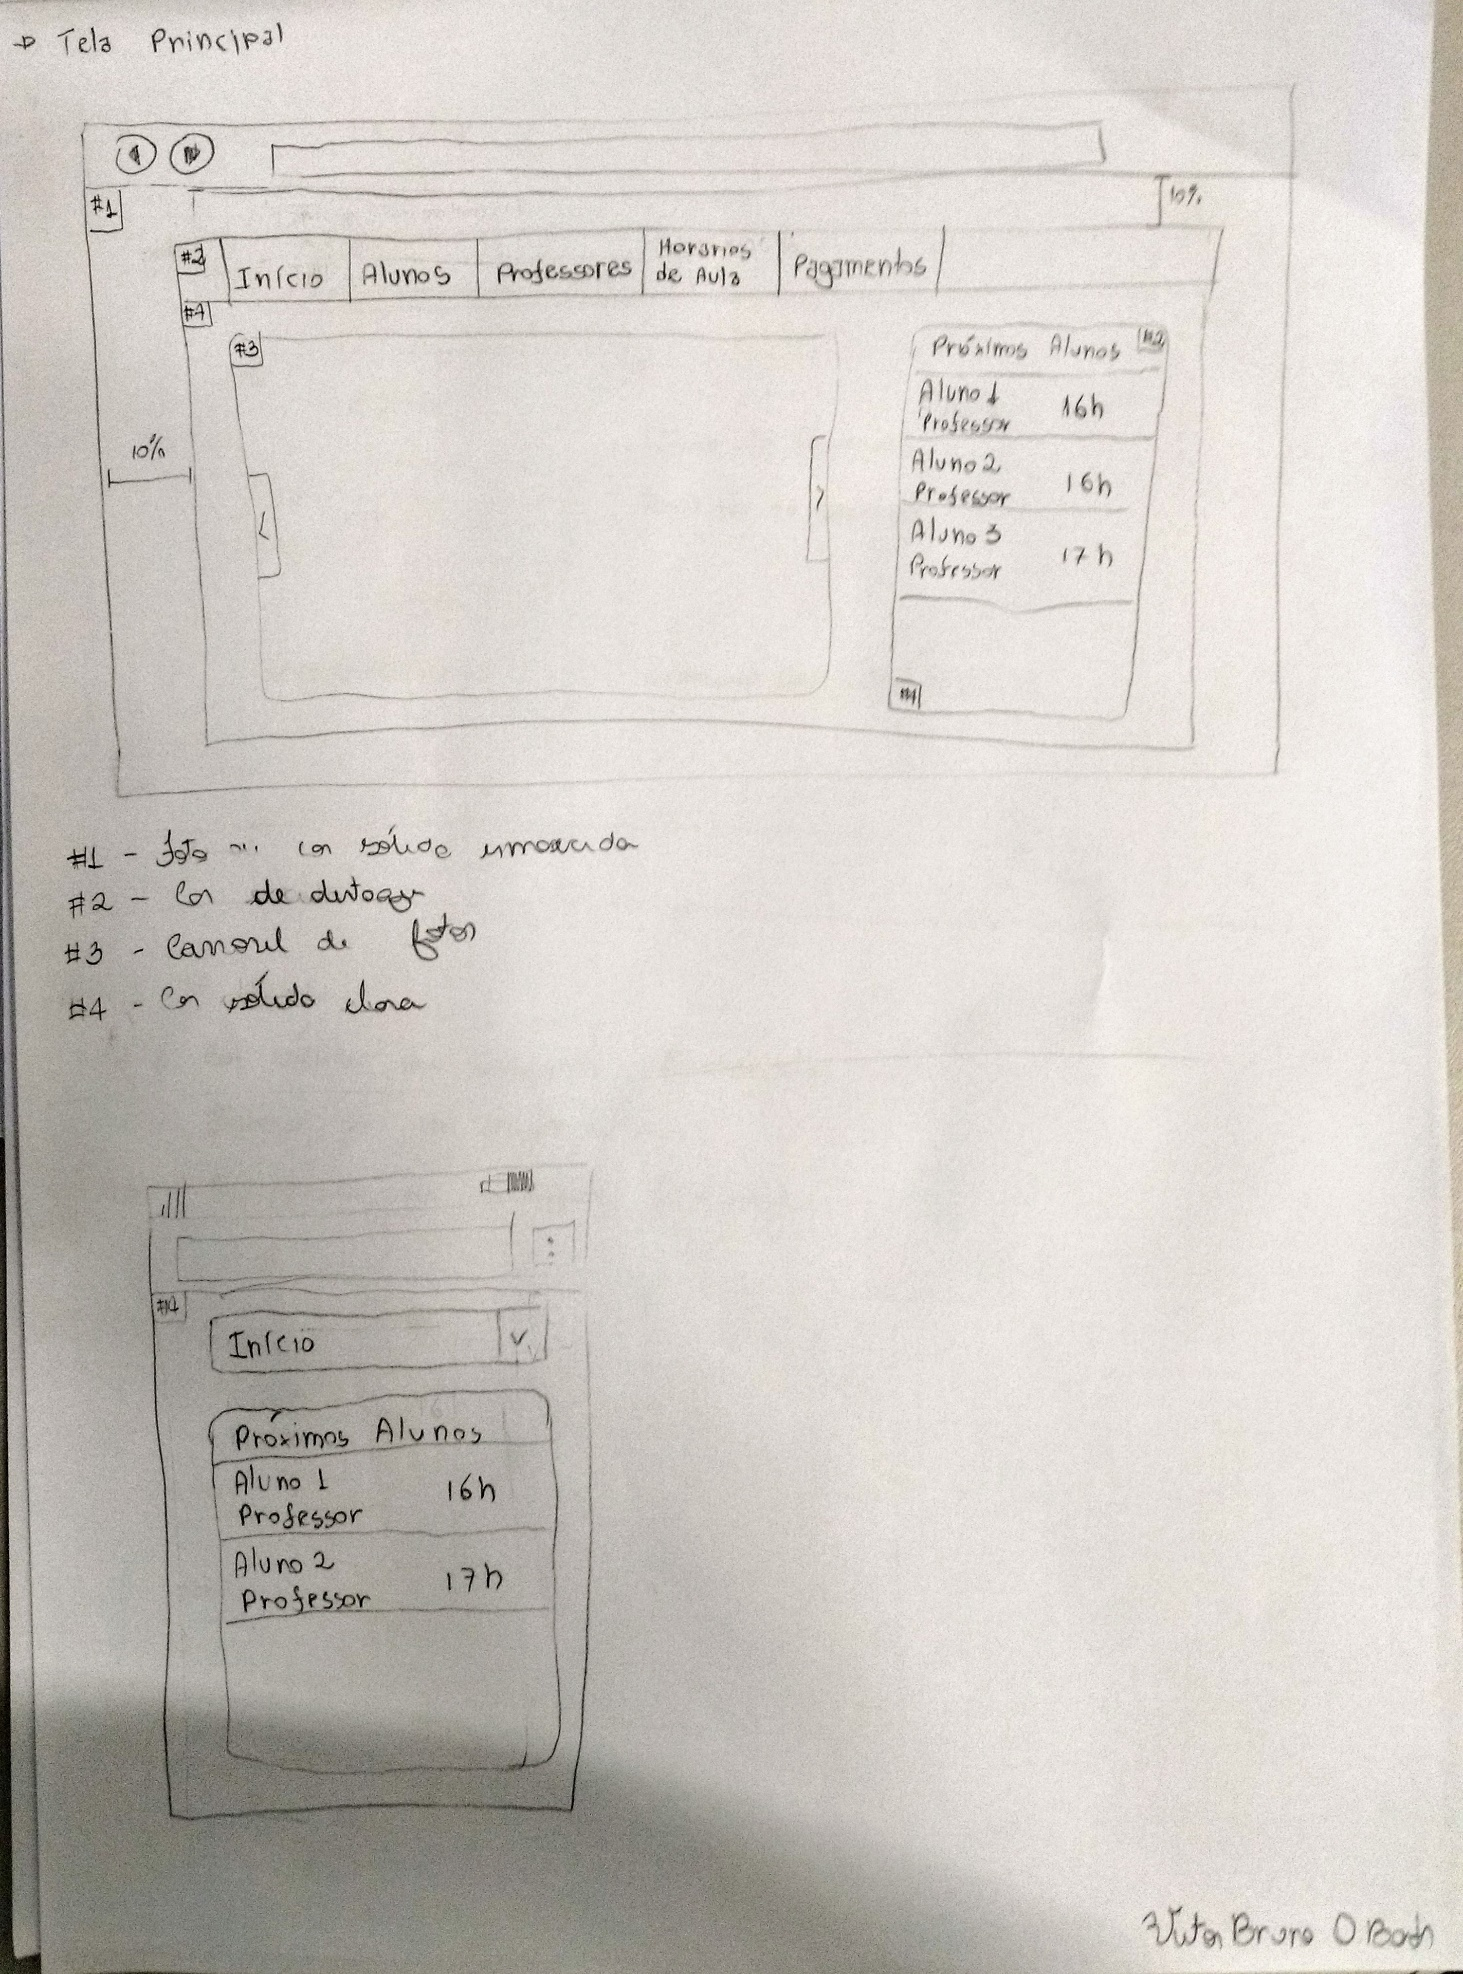 → Tela Principal
#1
10%
#2 Início Alunos Professores Horários de Aula Pagamentos
#4
#3
Próximos Alunos #2
Aluno 1 16h
Professor
10%
Aluno 2 16h
Professor
<
>
Aluno 3 17h
Professor
#4
#1 - foto ou cor sólida
#2 - Cor de destaque
#3 - Carrossel de fotos
#4 - Cor sólida clara
Início
Próximos Alunos
Aluno 1 16h
Professor
Aluno 2 17h
Professor
Bruno O